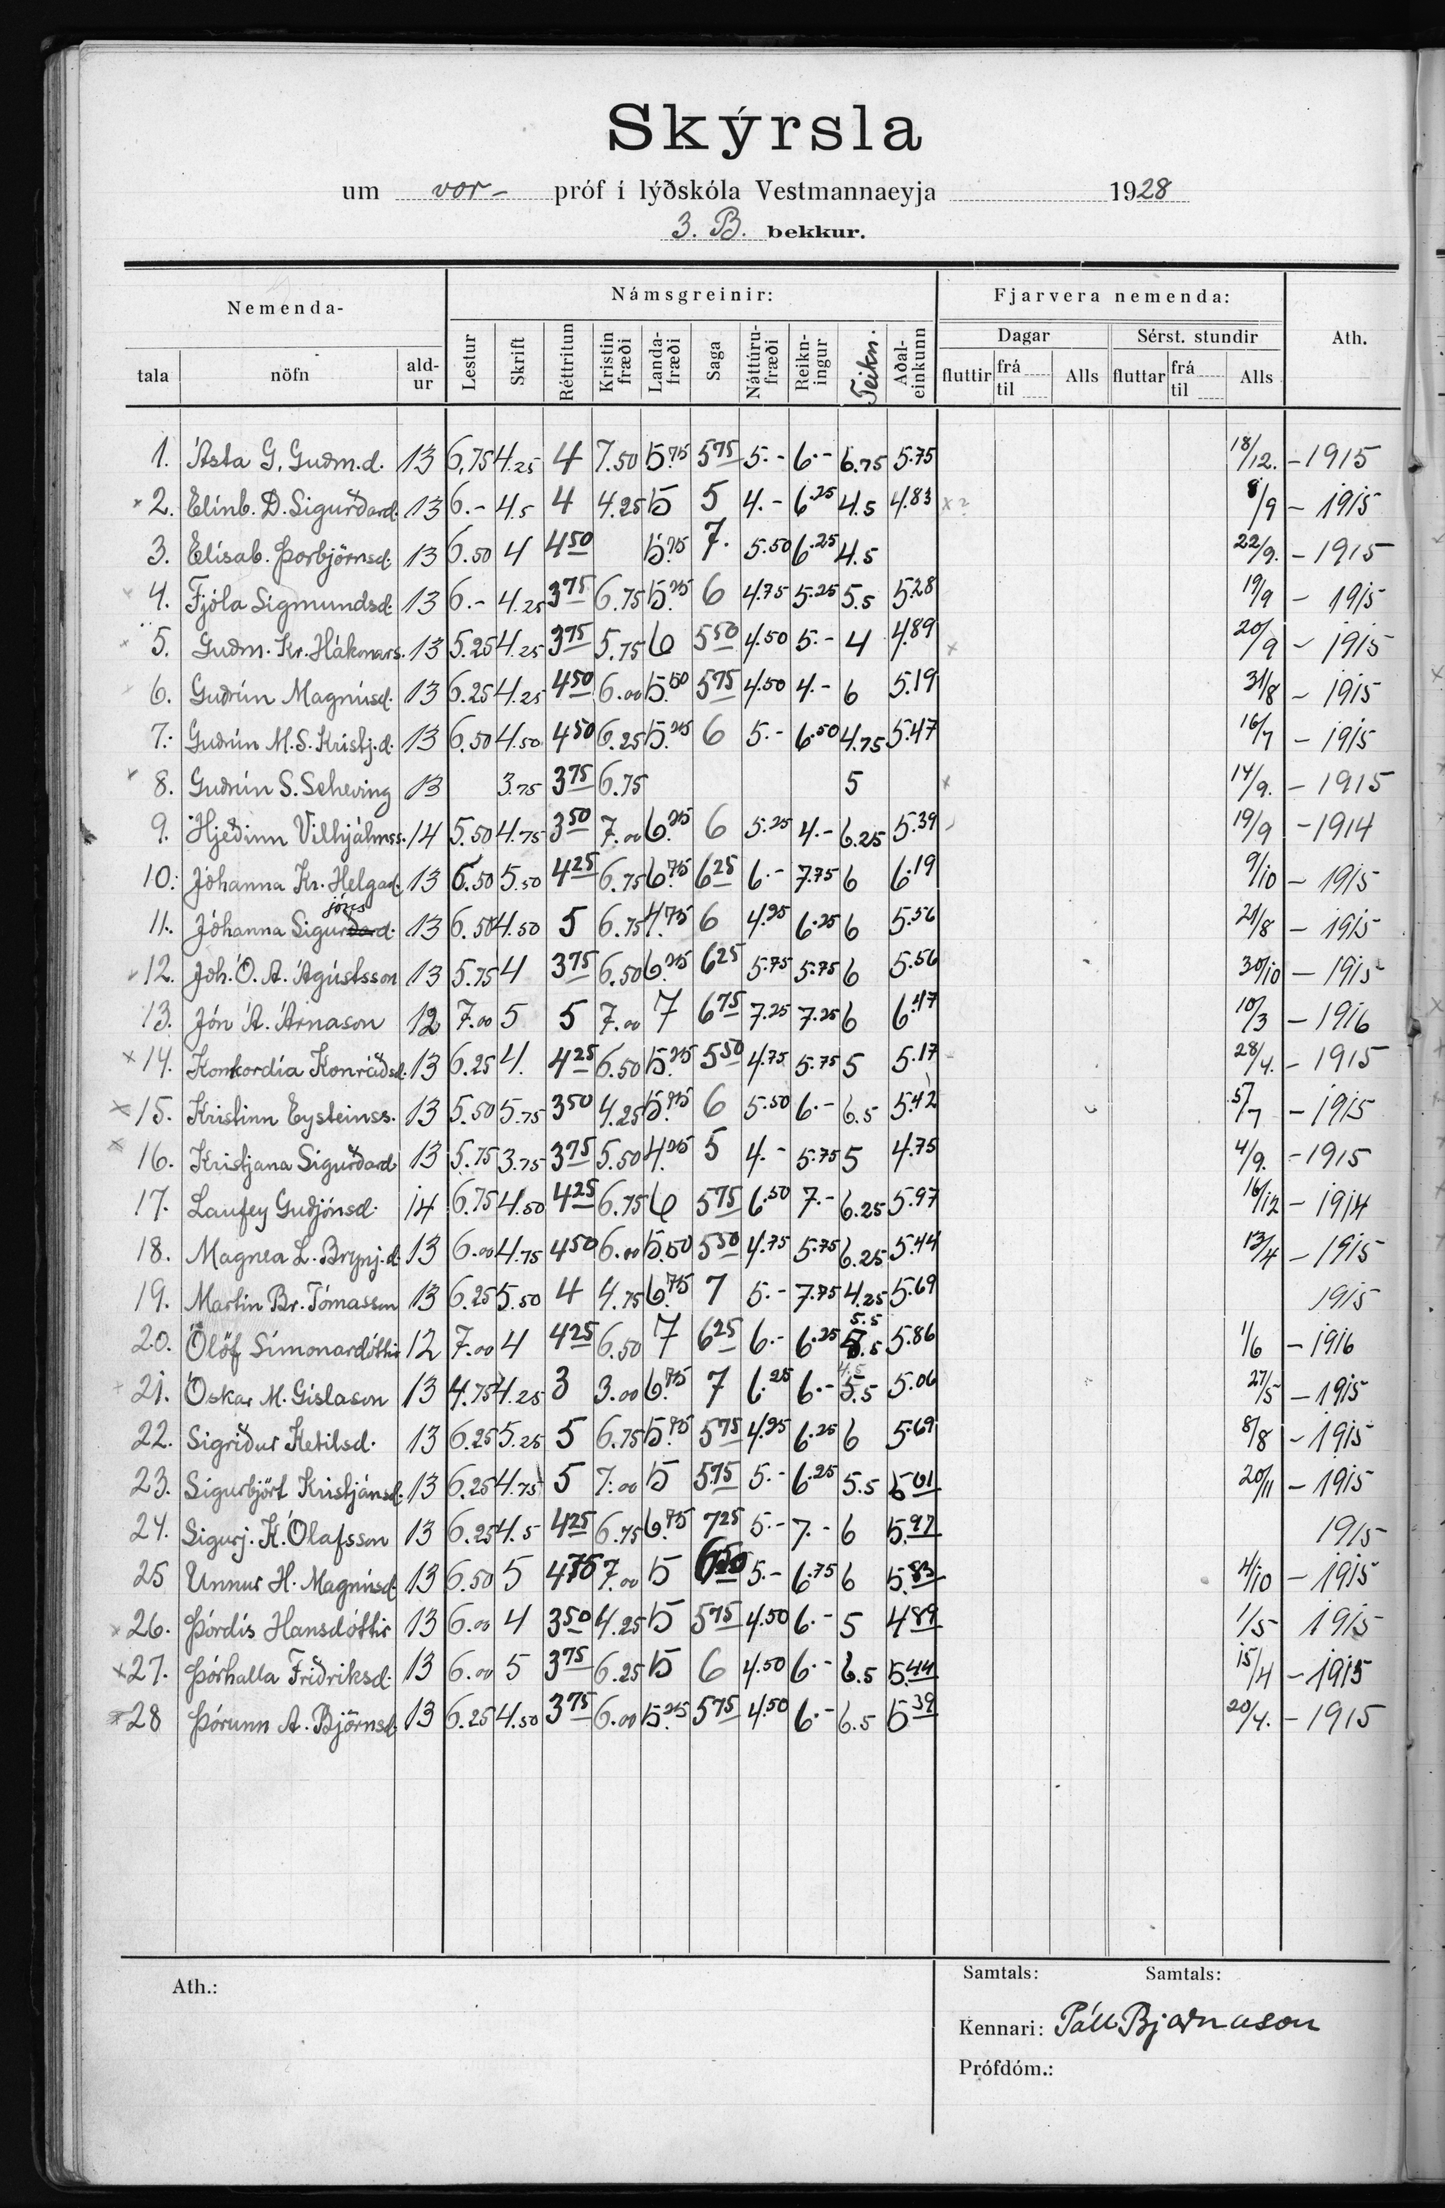 Skýrsla
um vor- próf í lýðskóla Vestmannaeyja 1928
3. B. bekkur.
Nemenda- Námsgreinir: Fjarvera nemenda: Ath.
tala nöfn ald-ur Lestur Skrift Réttritun Kristin fræði Landa-fræði Saga Náttúru-fræði Reikn-ingur Teikn. Aðal-einkunn Dagar Sérst. stundir
fluttir frá til Alls fluttar frá til Alls
1. Ásta G. Guðm.d. 13 6,75 4.25 4 7.50 5.75 575 5.- 6.- 6.75 5.75 18/12. - 1915
× 2. Elínb. D. Sigurðard. 13 6.- 4.5 4 4.25 5 5 4.- 6.25 4.5 4.83 ×? 8/9 - 1915
3. Elísab. Þorbjörnsd. 13 6.50 4 450 5.75 7. 5.50 6.25 4.5 22/9. - 1915
× 4. Fjóla Sigmundsd. 13 6.- 4.25 375 6.75 5.25 6 4.75 5.25 5.5 5.28 19/9 - 1915
× 5. Guðm. Kr. Hákonars. 13 5.25 4.25 375 5.75 6 550 4.50 5.- 4 4.89 × 20/9 - 1915
6. Guðrún Magnúsd. 13 6.25 4.25 450 6.00 5.50 575 4.50 4.- 6 5.19 31/8 - 1915
7. Guðrún M. S. Kristj.d. 13 6.50 4.50 450 6.25 5.25 6 5.- 6.50 4.75 5.47 16/7 - 1915
× 8. Guðrún S. Scheving 13 3.75 375 6.75 5 × 14/9. - 1915
9. Hjeðinn Vilhjálmss. 14 5.50 4.75 350 7.00 6.25 6 5.25 4.- 6.25 5.39 19/9 - 1914
10. Jóhanna Kr. Helgad. 13 6.50 5.50 425 6.75 6.75 625 6.- 7.75 6 6.19 9/10 - 1915
jóns
11. Jóhanna Sigurðard. 13 6.50 4.50 5 6.75 4.75 6 4.25 6.25 6 5.56 21/8 - 1915
12. Jóh. Ó. Á. Ágústsson 13 5.75 4 375 6.50 6.25 625 5.75 5.75 6 5.56 30/10 - 1915
13. Jón Á. Árnason 12 7.00 5 5 7.00 7 675 7.25 7.25 6 6.47 10/3 - 1916
× 14. Konkordía Konráðsd. 13 6.25 4. 425 6.50 5.25 550 4.75 5.75 5 5.17 28/4. - 1915
× 15. Kristinn Eysteinss. 13 5.50 5.75 350 4.25 5.75 6 5.50 6.- 6.5 5.42 5/7 - 1915
× 16. Kristjana Sigurðard 13 5.75 3.75 375 5.50 4.25 5 4.- 5.75 5 4.75 4/9. - 1915
17. Laufey Guðjónsd. 14 6.75 4.50 425 6.75 6 575 6.50 7.- 6.25 5.97 16/12 - 1914
18. Magnea L. Brynj.d. 13 6.00 4.75 450 6.00 5.50 550 4.75 5.75 6.25 5.44 13/4 - 1915
19. Martin Br. Tómasson 13 6.25 5.50 4 4.75 6.75 7 5.- 7.75 4.25 5.69 1915
5.5
20. Ólöf Símonardóttir 12 7.00 4 425 6.50 7 625 6.- 6.25 5.86 1/6 - 1916
4.5
21. Óskar M. Gíslason 13 4.75 4.25 3 3.00 6.75 7 6.25 6.- 5.5 5.06 27/5 - 1915
22. Sigríður Ketilsd. 13 6.25 5.25 5 6.75 5.75 575 4.25 6.25 6 5.69 8/8 - 1915
23. Sigurbjört Kristjánsd. 13 6.25 4.75 5 7.00 5 575 5.- 6.25 5.5 5 61 20/11 - 1915
24. Sigurj. K. Ólafsson 13 6.25 4.5 425 6.75 6.75 725 5.- 7.- 6 5.97 1915
25 Unnur H. Magnúsd. 13 6.50 5 475 7.00 5 650 5.- 6.75 6 5.83 4/10 - 1915
× 26. Þórdís Hansdóttir 13 6.00 4 350 4.25 5 575 4.50 6.- 5 489 1/5 1915
× 27. Þórhalla Friðriksd. 13 6.00 5 375 6.25 5 6 4.50 6.- 6.5 5.44 15/4 - 1915
× 28 Þórunn A. Björnsd. 13 6.25 4.50 375 6.00 5.25 575 4.50 6.- 6.5 5 39 20/4. - 1915
Ath.: Samtals: Samtals:
Kennari: Páll Bjarnason
Prófdóm.: